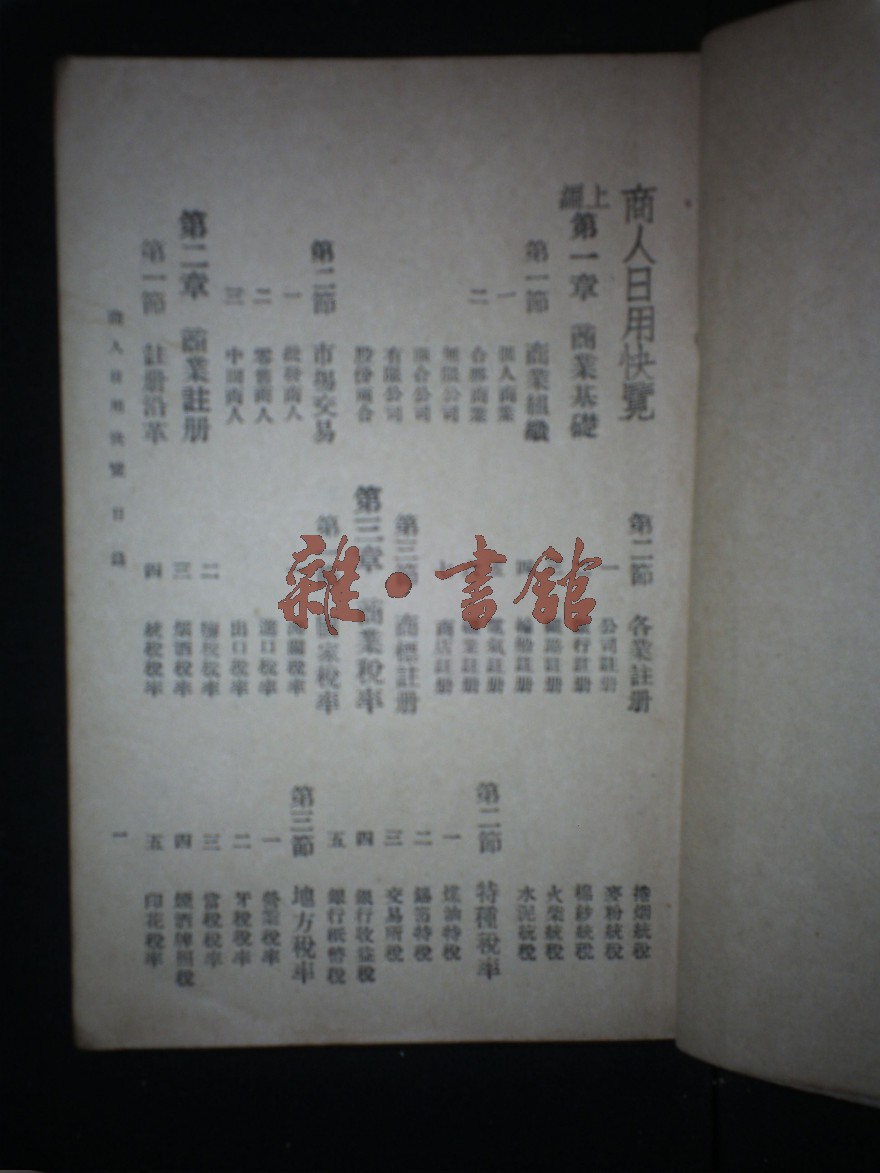 商人日用快覽
上編
第一章 商業基礎
第一節 商業組織
一 個人商業
二 合夥商業
無限公司
兩合公司
有限公司
股份兩合
第二節 市場交易
一 批發商人
二 零售商人
三 中間商人
第二章 商業註册
第一節 註册沿革
第二節 各業註册
一 公司註册
行註册
鐵路註册
四 船舶註册
電氣註册
業註册
商店註册
第三節 商標註册
第三章 商業稅率
第一 國家稅率
海關稅率
進口稅率
出口稅率
二 鹽稅稅率
三 烟酒稅率
四 統稅稅率
捲烟統稅
麥粉統稅
棉紗統稅
火柴統稅
水泥統稅
第二節 特種稅率
一 煤油特稅
二 錫箔特稅
三 交易所稅
四 銀行收益稅
五 銀行紙幣稅
第三節 地方稅率
一 營業稅率
二 牙稅稅率
三 當稅稅率
四 烟酒牌照稅
五 印花稅率
商人日用快覽 目錄
一
雜·書館